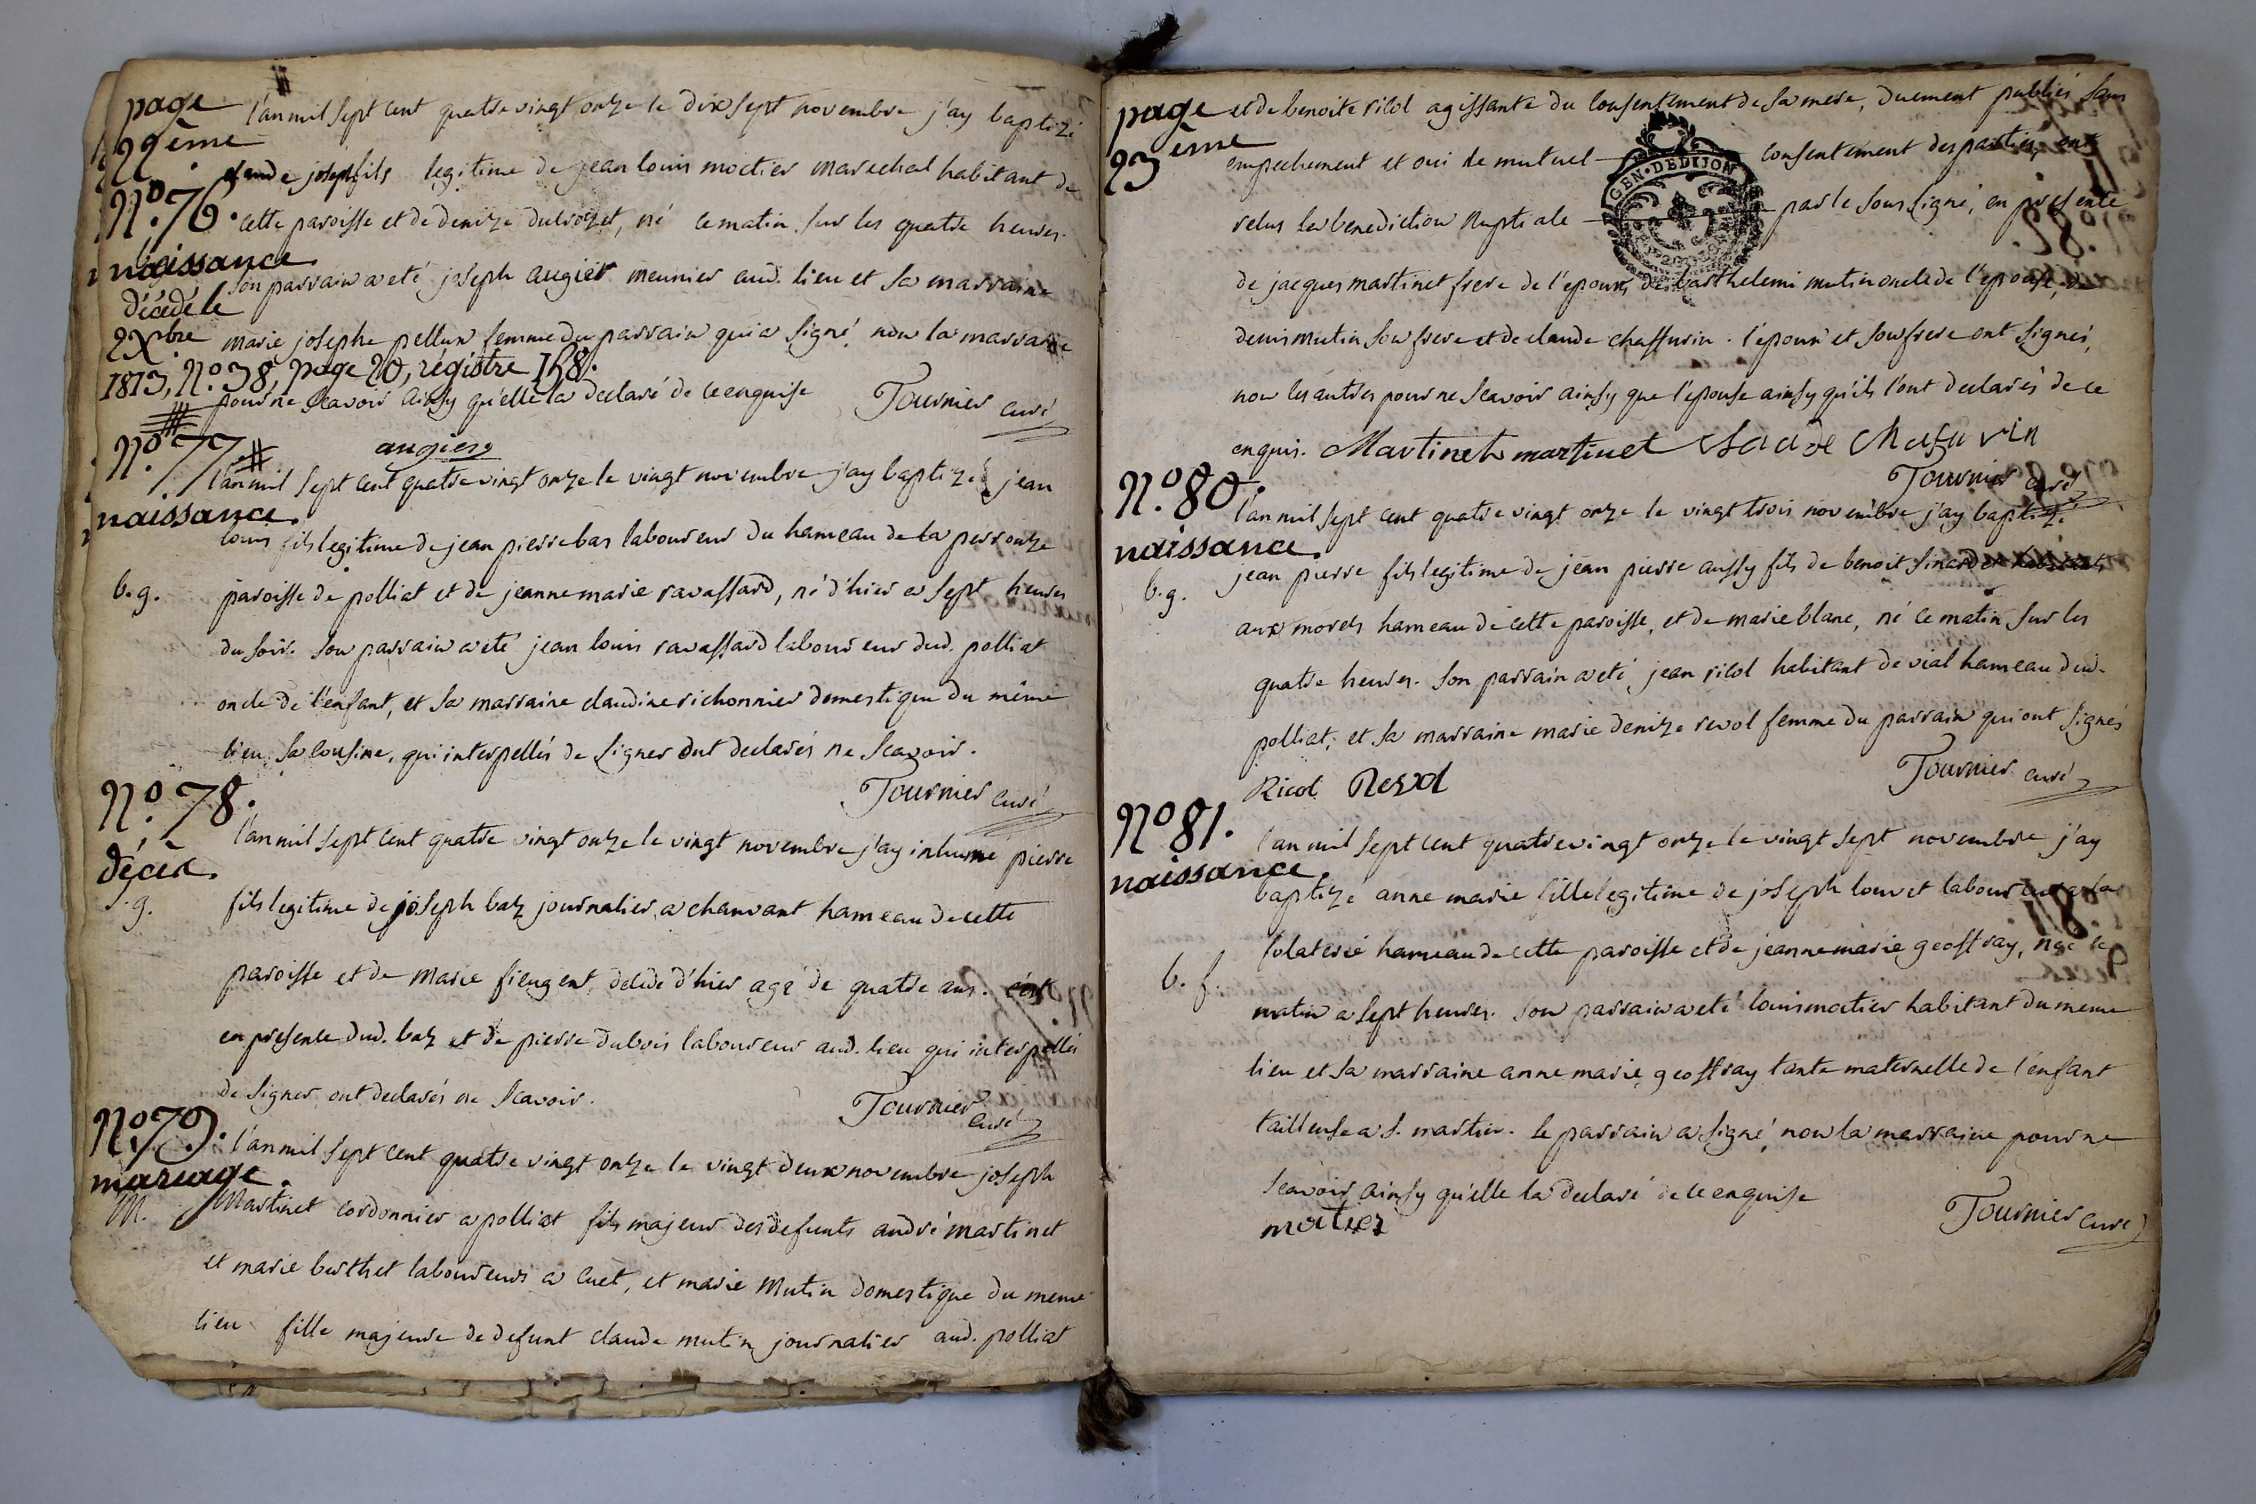 page
22ème
l'an mil sept cent quatre vingt onze le dix sept novembre j'ay baptizé
claude joseph fils legitime de jean louis moctier marechal habitant de
N.º 76.
cette paroisse et de denize dulrozet, né ce matin sur les quatre heures.
naissance.
son parrain a eté joseph augier meunier aud. lieu et sa marraine
décédé le
2 Xbre
marie josephe pellux femme du parrain qui a signé, non la marraine
1813, N.º 38, page 20, régistre 158.
pour ne scavoir ainsy qu'elle la declaré de ce enquise Tournier curé
augier
N.º 77.
l'an mil sept cent quatre vingt onze le vingt novembre j'ay baptizé jean
naissance.
louis fils legitime de jean pierre bas laboureur du hameau de la perrouze
b. g.
paroisse de polliat et de jeanne marie ravassard, né d'hier a sept heures
du soir. son parrain a eté jean louis ravassard laboureur dud. polliat
oncle de l'enfant, et sa marraine claudine richonnier domestique du même
lieu sa cousine, qui interpellés de signer ont declarés ne scavoir.
Tournier curé
N.º 78.
l'an mil sept cent quatre vingt onze le vingt novembre j'ay inhumé pierre
décès.
s. g.
fils legitime de joseph baz journalier a chanvant hameau de cette
paroisse et de marie fieugent, decedé d'hier agé de quatre ans.
en presence dud. baz et de pierre dubois laboureur aud. lieu qui interpellés
de signer ont declarés ne scavoir. Tournier curé
N.º 79.
l'an mil sept cent quatre vingt onze le vingt deux novembre joseph
mariage.
M.
Martinet cordonnier a polliat fils majeur des defunts andré martinet
et marie berthet laboureurs a cuet, et marie Mutin domestique du meme
lieu fille majeure de defunt claude mutin journalier aud. polliat
page
23ème
et de benoite ricol agissante du consentement de sa mere, duement publiés sans
empechement et oui le mutuel consentement des parties, ont
GEN. DE DIJON
relus la benediction nuptiale par le soussigné, en presence
de jacques martinet frere de l'epoux, de barthelemi mutin oncle de l'epouse, de
denis mutin son frere et de claude chaffurin. l'epoux et son frere ont signés,
non les autres pour ne scavoir ainsy que l'epouse ainsy qu'ils l'ont declarés de ce
enquis. Martinet martinet Claude Chafuvin
Tournier curé
N.º 80.
l'an mil sept cent quatre vingt onze le vingt trois novembre j'ay baptizé
naissance.
jean pierre fils legitime de jean pierre aussy fils de benoit sinardet
b. g.
aux morels hameau de cette paroisse, et de marie blanc, né ce matin sur les
quatre heures. son parrain a eté jean ricol habitant de vial hameau dud.
polliat, et sa marraine marie denize revol femme du parrain qui ont signés
Ricol Revol Tournier curé
N.º 81.
l'an mil sept cent quatre vingt onze le vingt sept novembre j'ay
naissance.
baptizé anne marie fille legitime de joseph louvet laboureur a la
folaterie hameau de cette paroisse et de jeanne marie geoffray, née le
b. f.
matin a sept heures. son parrain a eté louis moctier habitant du meme
lieu et sa marraine anne marie geoffray tante maternelle de l'enfant
tailleuse a s. martin. le parrain a signé, non la marraine pour ne
scavoir ainsy qu'elle la declaré de ce enquise
moctier Tournier curé